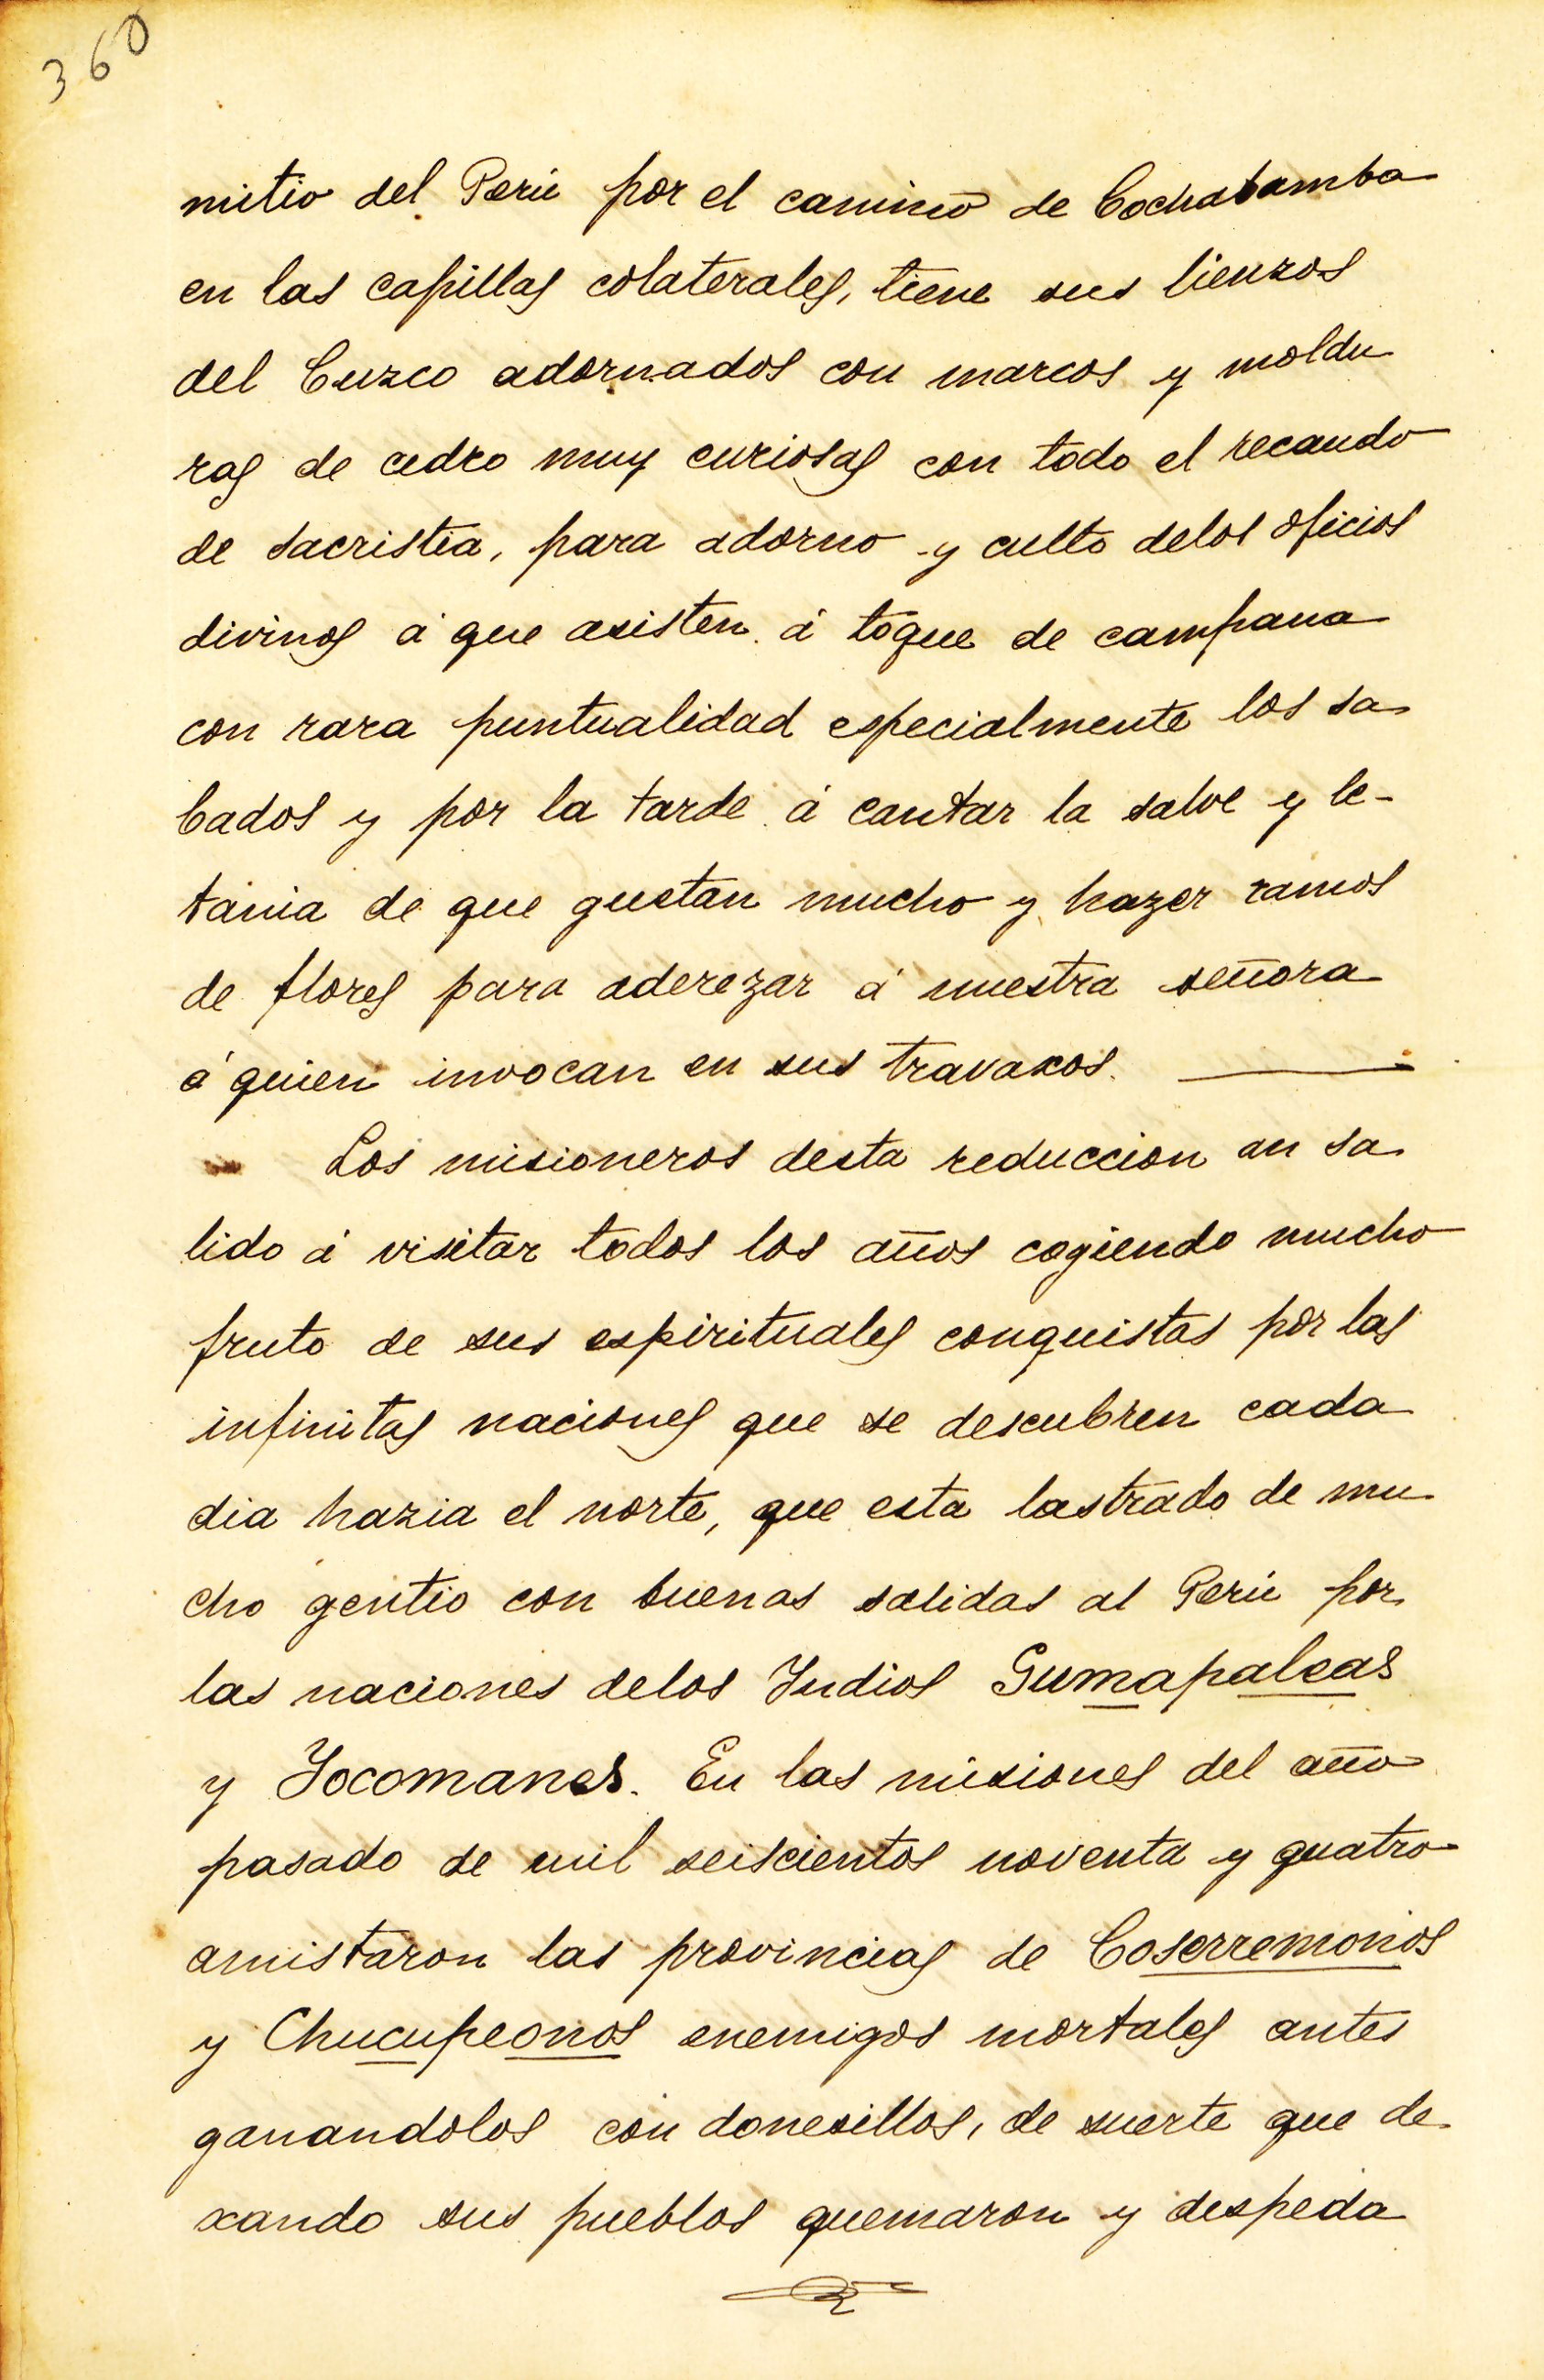 360
mitio del Perú por el camino de Cochabamba
en las capillas colaterales, tiene sus lienzos
del Cuzco adornados con marcos y moldu
ras de cedro muy curiosas con todo el recaudo
de sacristia, para adorno y culto delos oficios
divinos á que asisten á toque de campana
con rara puntualidad especialmente los sa
bados y por la tarde á cantar la salve y le-
tania de que gustan mucho y hazer ramos
de flores para aderezar á nuestra señora
á quien invocan en sus travaxos.
Los misioneros desta reduccion an sa
lido á visitar todos los años cogiendo mucho
fruto de sus espirituales conquistas por las
infinitas naciones que se descubren cada
dia hazia el norte, que esta lastrado de mu
cho gentio con buenas salidas al Perú por
las naciones delos Indios Sumapalcas
y Yocomanes. En las misiones del año
pasado de mil seiscientos noventa y quatro
amistaron las provincias de Coserremonios
y Chucupeonos enemigos mortales antes
ganandolos con donesillos, de suerte que de
xando sus pueblos quemaron y despeda